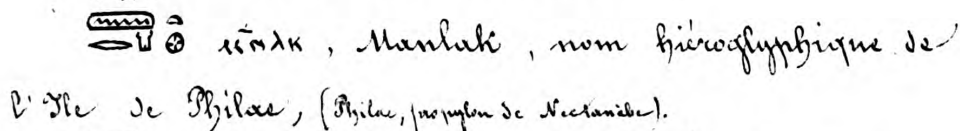 , Manlak, nom hiéroglyphique de
l'Ile de Philae, (Philae, propylon de Nectanèbe).